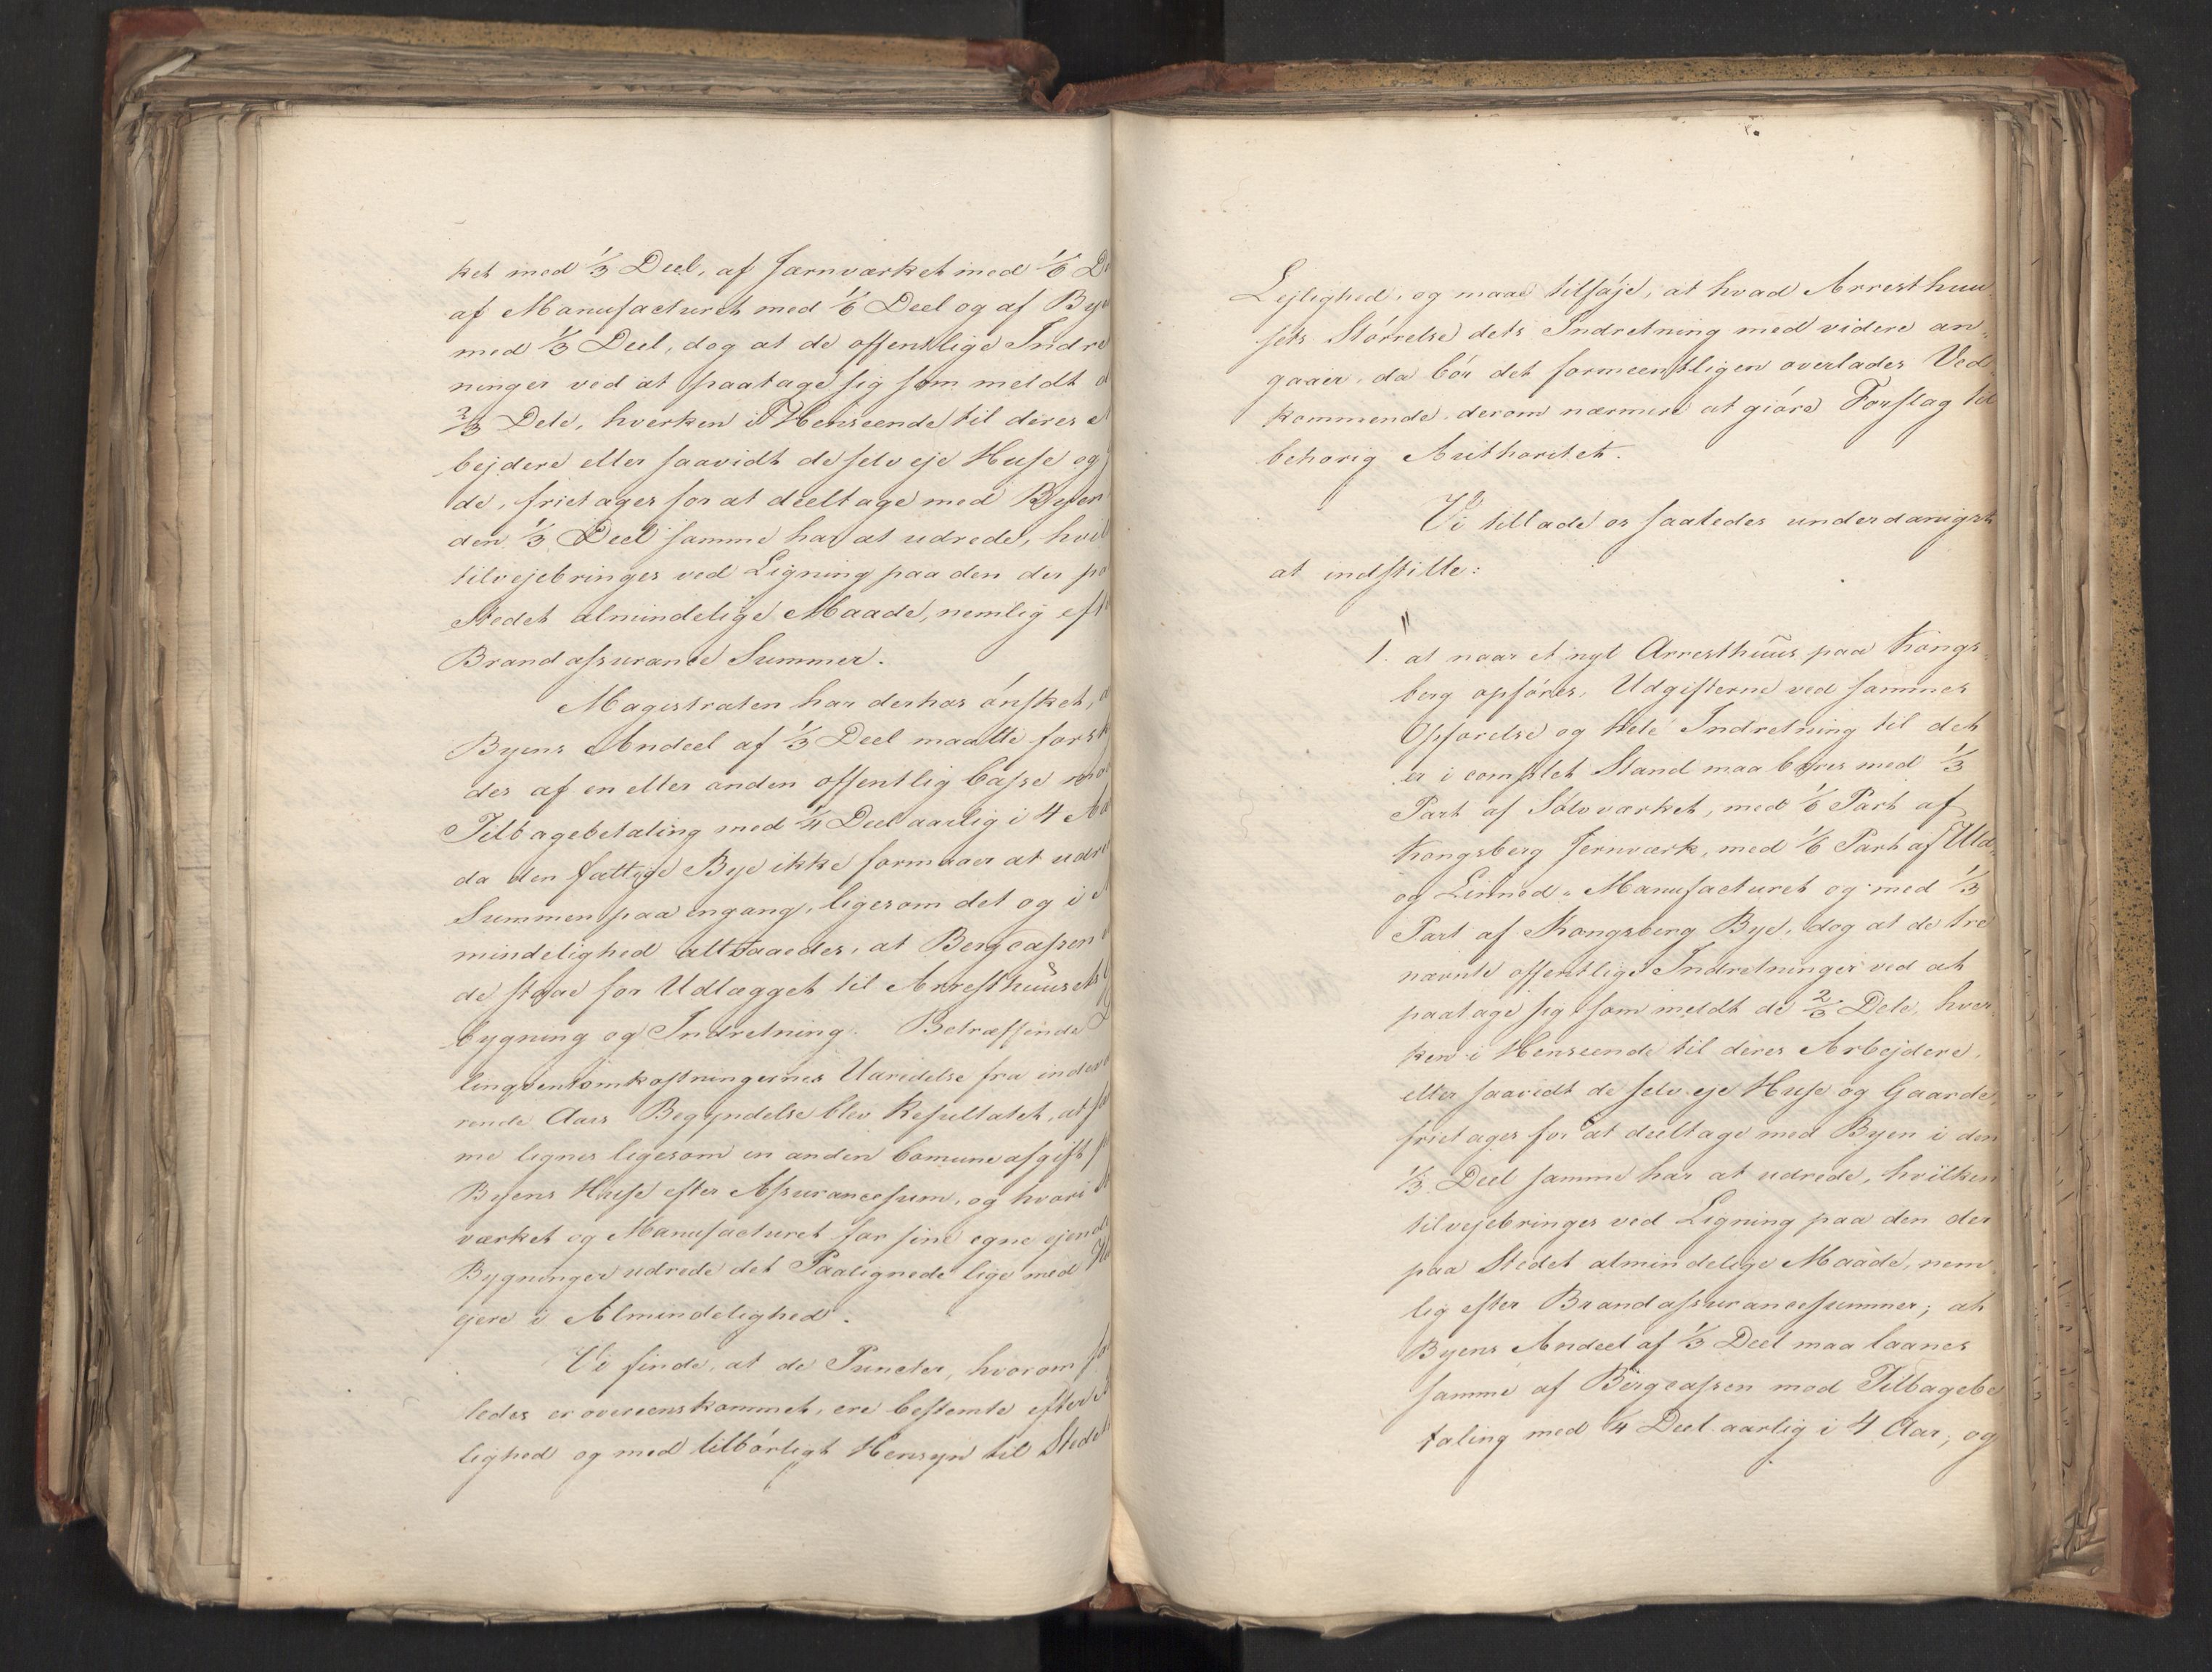 ket med 1/3 Deel, af Jærnværket med 1/6 D
af Manufacturet med 1/6 Deel og af Bye
med 1/3 Deel, dog at de offentlige Indre
ninger ved at paatage sig som meldt d
2/3 Dele, hverken i Henseende til deres A
bejdere eller saavidt de selv eje Huse og
de, frietages for at deeltage med Byen
den 1/3 Deel samme har at udrede, hvil
tilvejebringes ved Ligning paa den der pa
Stedet almindelige Maade, nemlig eft
Brandassurance Summer.
Magistraten har derhos ønsket, a
Byens Andeel af 1/3 Deel maatte forsk
des af en eller anden offentlig Casse mod
Tilbagebetaling med 1/4 Deel aarlig i 4 Aa
da den fattige Bye ikke formaaer at udre
Summen paa engang, ligesom det og i A
mindelighed attraaedes, at Bergcassen
de staae for Udlægget til Arresthuusets
bygning og Indretning. Betræffende D
linqventomkostningernes Udredelse fra inde
rende Aars Begyndelse blev Resultatet, at sa
me lignes ligesom en anden Comuneafgift p
Byens Huse efter Assurancesum, og hvori
værket og Manufacturet for sine egne ejend
Bygninger udrede det Paalignede lige med Hu
ejere i Almindelighed.
Vi finde, at de Puncter, hvorom so
ledes er overeenskommet, ere bestemte efter
lighed og med tilbørligt Hensyn til Stede
Lejlighed, og maae tilføje, at hvad Arresthuu-
sets Størrelse dets Indretning med videre an-
gaaer, da bør det formeentligen overlades Ved-
kommende, derom nærmere at giøre Forslag til
behørig Authoritet.
Vi tillade os saaledes underdanigst
at indstille:
1. at naar et nyt Arresthuus paa Kongs-
berg opføres, Udgifterne ved sammes
Opførelse og hele Indretning til det
er i complet Stand maa bæres med 1/3
Part af Sølvværket, med 1/6 Part af
Kongsberg Jernværk, med 1/6 Part af Uld-
og Linned-Manufacturet og med 1/3
Part af Kongsberg Bye, dog at de tre
nævnte offentlige Indretninger ved at
paatage sig som meldt de 2/3 Dele, hver-
ken i Henseende til deres Arbejdere,
eller saavidt de selv eje Huse og Gaarde,
frietages for at deeltage med Byen i den
1/3 Deel samme har at udrede, hvilken
tilvejebringes ved Ligning paa den der
paa Stedet almindelige Maade, nem-
lig efter Brandassurancesummer; at
Byens Andeel af 1/3 Deel maa laanes
samme af Bergcassen mod Tilbagebe
taling med 1/4 Deel aarlig i 4 Aar; og